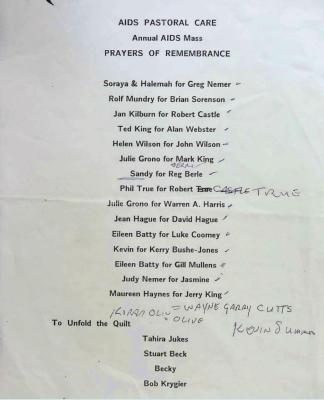 AIDS PASTORAL CARE
Annual AIDS Mass
PRAYERS OF REMEMBRANCE
Soraya & Halemah for Greg Nemer
Rolf Mundry for Brian Sorenson
Jan Kilburn for Robert Castle
Ted King for Alan Webster
Helen Wilson for John Wilson
Julie Grono for Mark King
Sandy for Reg Berle
Phil True for Robert CASTLE TRUE
Julie Grono for Warren A. Harris
Jean Hague for David Hague
Eileen Batty for Luke Coomey
Kevin for Kerry Bushe-Jones
Eileen Batty for Gill Mullens
Judy Nemer for Jasmine
Maureen Haynes for Jerry King
= WAYNE GARRY CUTTS
= OLIVE
To Unfold the Quilt
KEVIN
Tahira Jukes
Stuart Beck
Becky
Bob Krygier